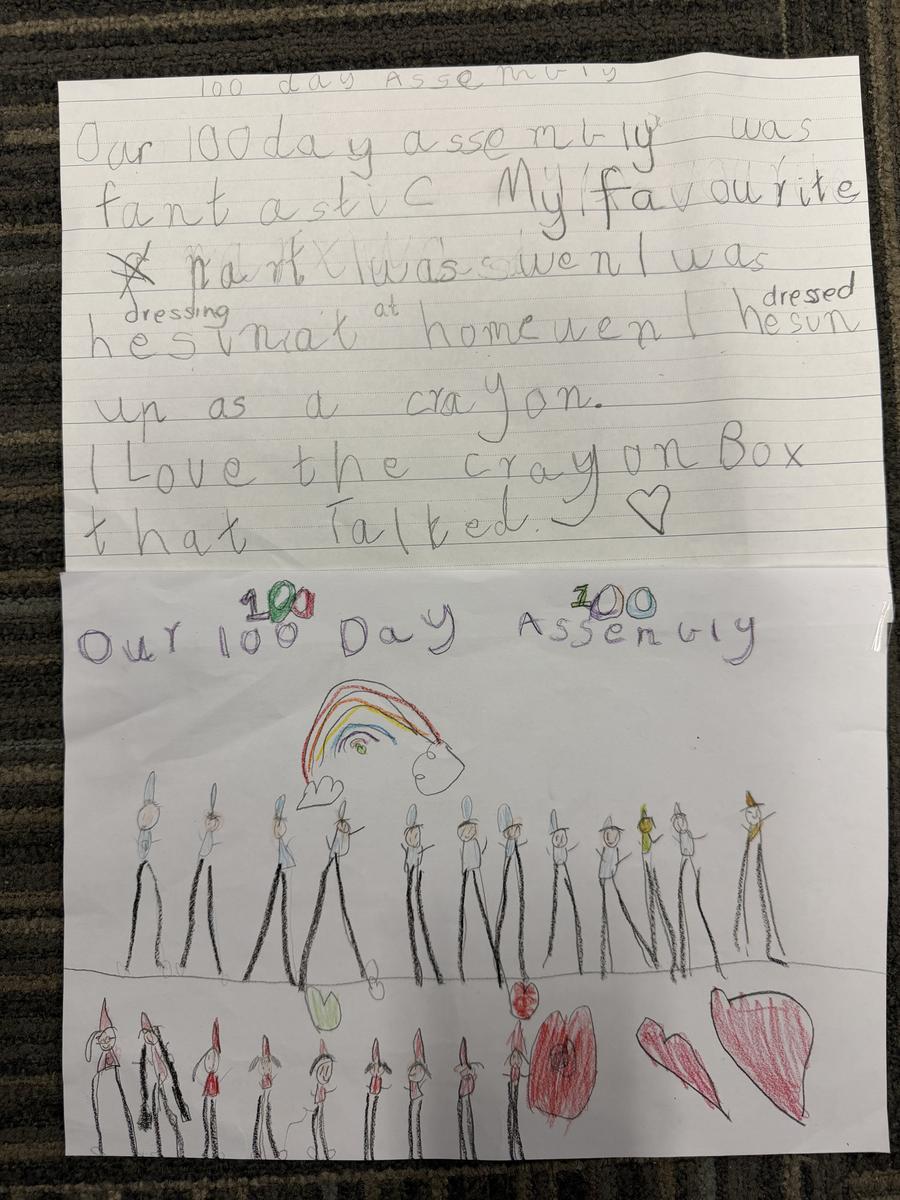 100 day Assembly
Our 100 day assembly was
fantastic My favourite
part was wen I was
dressing at dressed
hesinat home wen I hesun
up as a crayon.
I Love the crayon Box
that Talked.
100 100
Our 100 Day Assembly